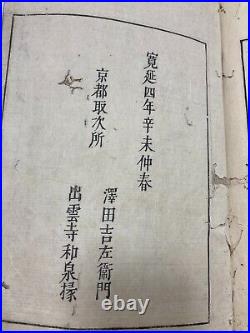 寛延四年辛未仲春
京都取次所
澤田吉左衞門
出雲寺和泉掾